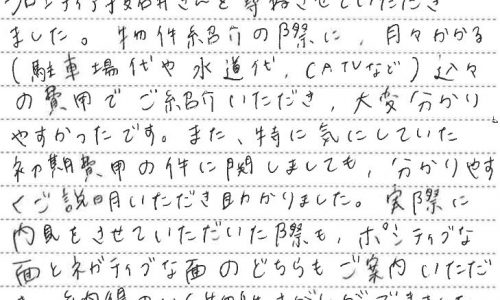 フロンティア技研さんを専任させていただき
ました。物件紹介の際に、月々かかる
(駐車場代や水道代、CATVなど)込々
の費用でご紹介いただき、大変分かり
やすかったです。また、特に気にしていた
初期費用の件に関しましても、分かりやす
くご説明いただき助かりました。実際に
内見をさせていただいた際も、ポジティブな
面とネガティブな面のどちらもご案内いただ